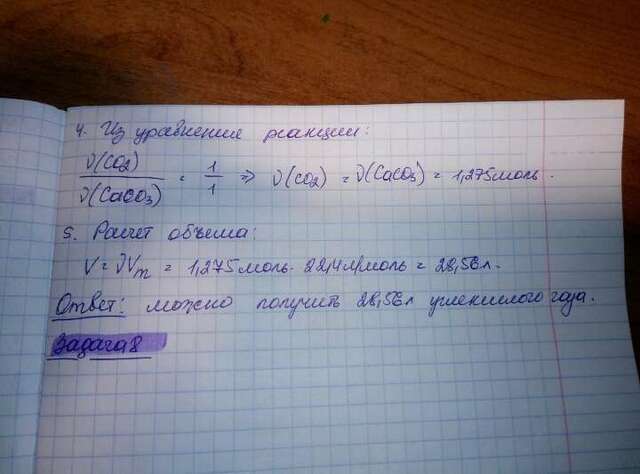 4. Из уравнения реакции:
ν(CO2)/ν(CaCO3) = 1/1 => ν(CO2) = ν(CaCO3) = 1,275моль.
5. Расчет объема:
V = νVm = 1,275моль · 22,4л/моль = 28,56л.
Ответ: можно получить 28,56л углекислого газа.
Задача 8